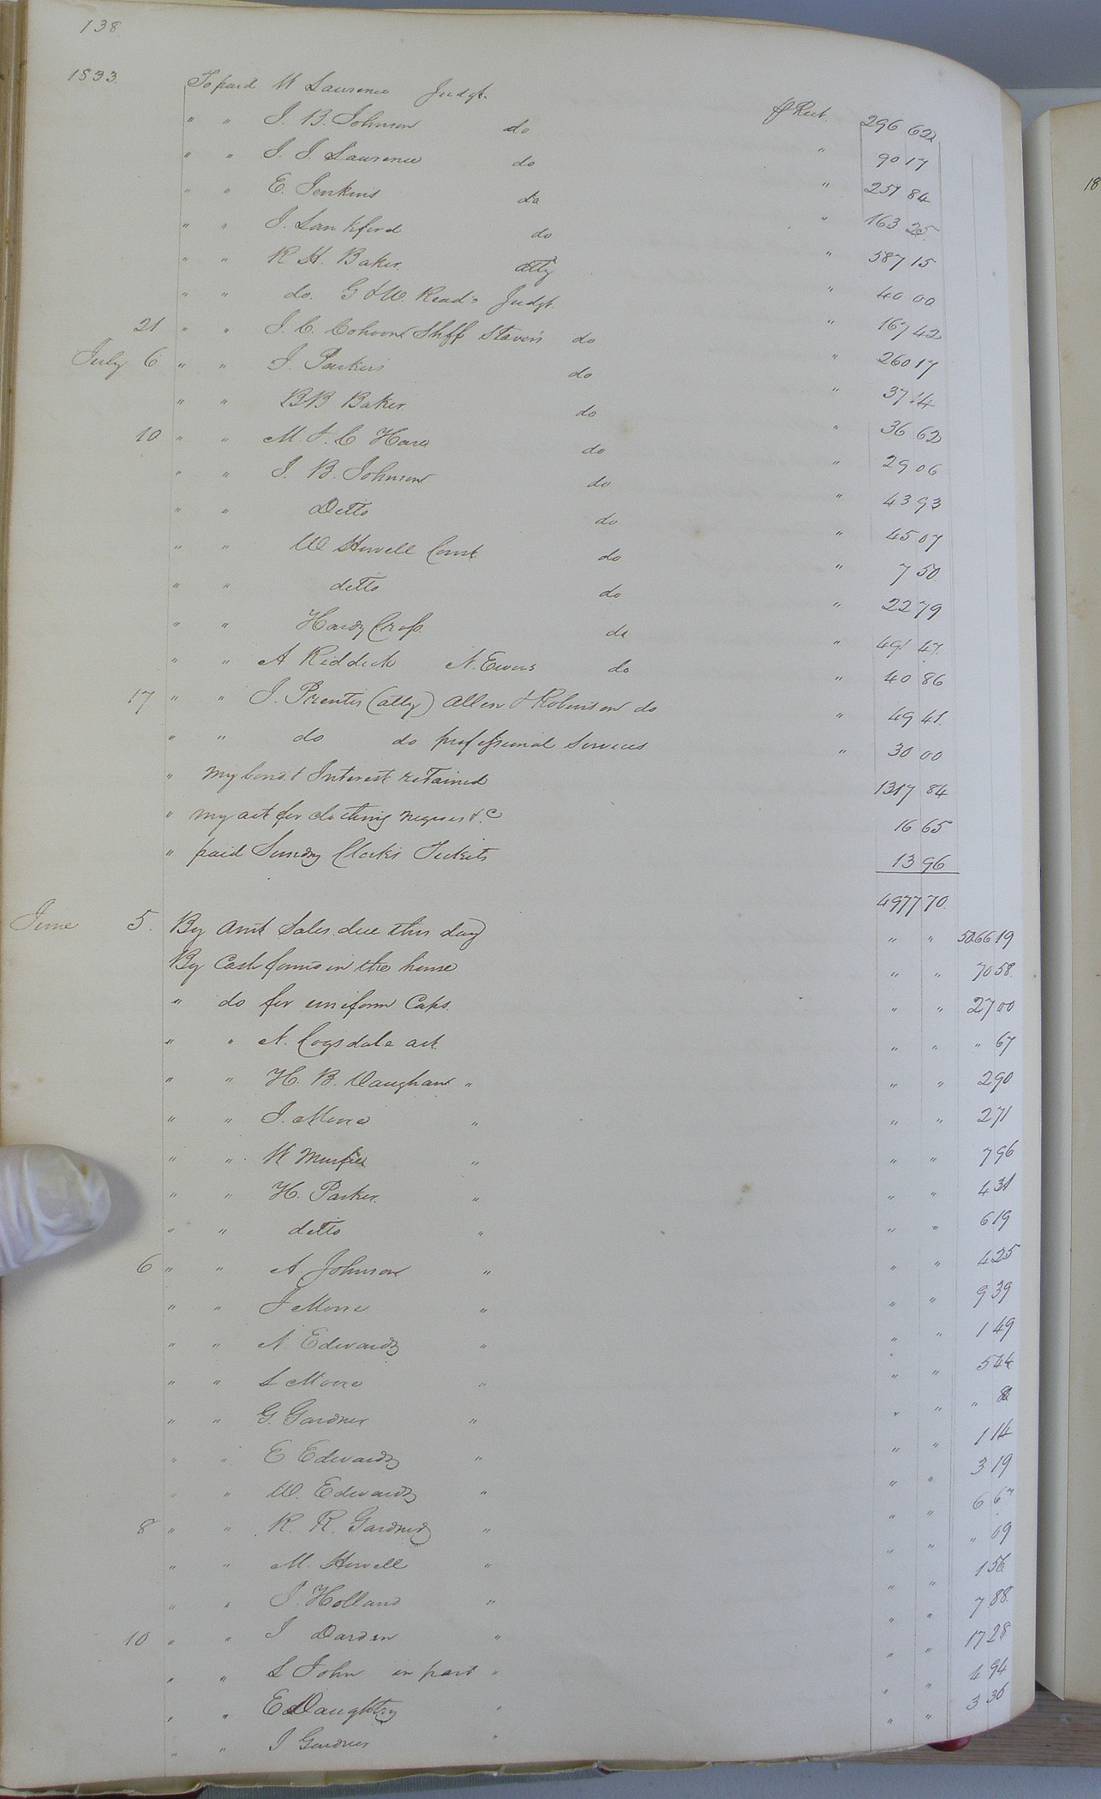 138
1833. To paid W Lawrence Judgt. pr Rect. 296 62
" " J. B. Johnson do " 90 17
" " J. J. Lawrence do " 257 84
" " E. Jenkins do " 163 25
" " J. Lankford do " 587 15
" " R H. Baker atty " 40 00
" " do. G & W Read's Judgt. " 167 42
21 " " J. C. Cohoon Shff do " 260 17
July 6 " " J. Parker's do " 37
" " B B Baker do " 36 62
10 " " M. & C Hare do " 29 06
" " J. B. Johnson do " 43 93
" " Ditto do " 45 07
" " W Howell Const do " 7 50
" " ditto do " 22 79
" " Hardy Cross do " 491 47
" " A Riddick N. Ewers do " 40 86
17 " " J. Prentis (atty) Allen & Robinson do " 49 41
" " do do professional Services " 30 00
" my bond & Interest retained 1317 84
" my act for clothing negroes &c 16 65
" paid Sundry Clerks Tickets 13 96
4977 70
June 5. By amt Sales due this day " " 5266 19
By Cash found in the house " " 70 58
" do for uniform Caps. " " 27 00
" " N. Cogsdale act. " " " 67
" " H. B. Vaughan " " " 2 90
" " J. Moore " " " 2 71
" " W Murfee " " " 7 96
" " H. Parker. " " " 4 31
" " ditto " " " 6 19
6 " " A. Johnson " " " 4 25
" " J Moore " " " 9 39
" " N Edwards " " " 1 49
" " S Moore " " " 5 44
" " G. Gardner " " " "
" " E Edwards " " " 1 14
" " W. Edwards " " " 3 19
8 " " R. R. Gardner " " " 6 67
" " M. Howell " " " " 09
" " J. Holland " " " 1 56
10 " " J Darden " " " 7 88
" " S John in part " " " 17 28
" " E Daughtry " " " 4 94
" " J Gardner " " " 3 36